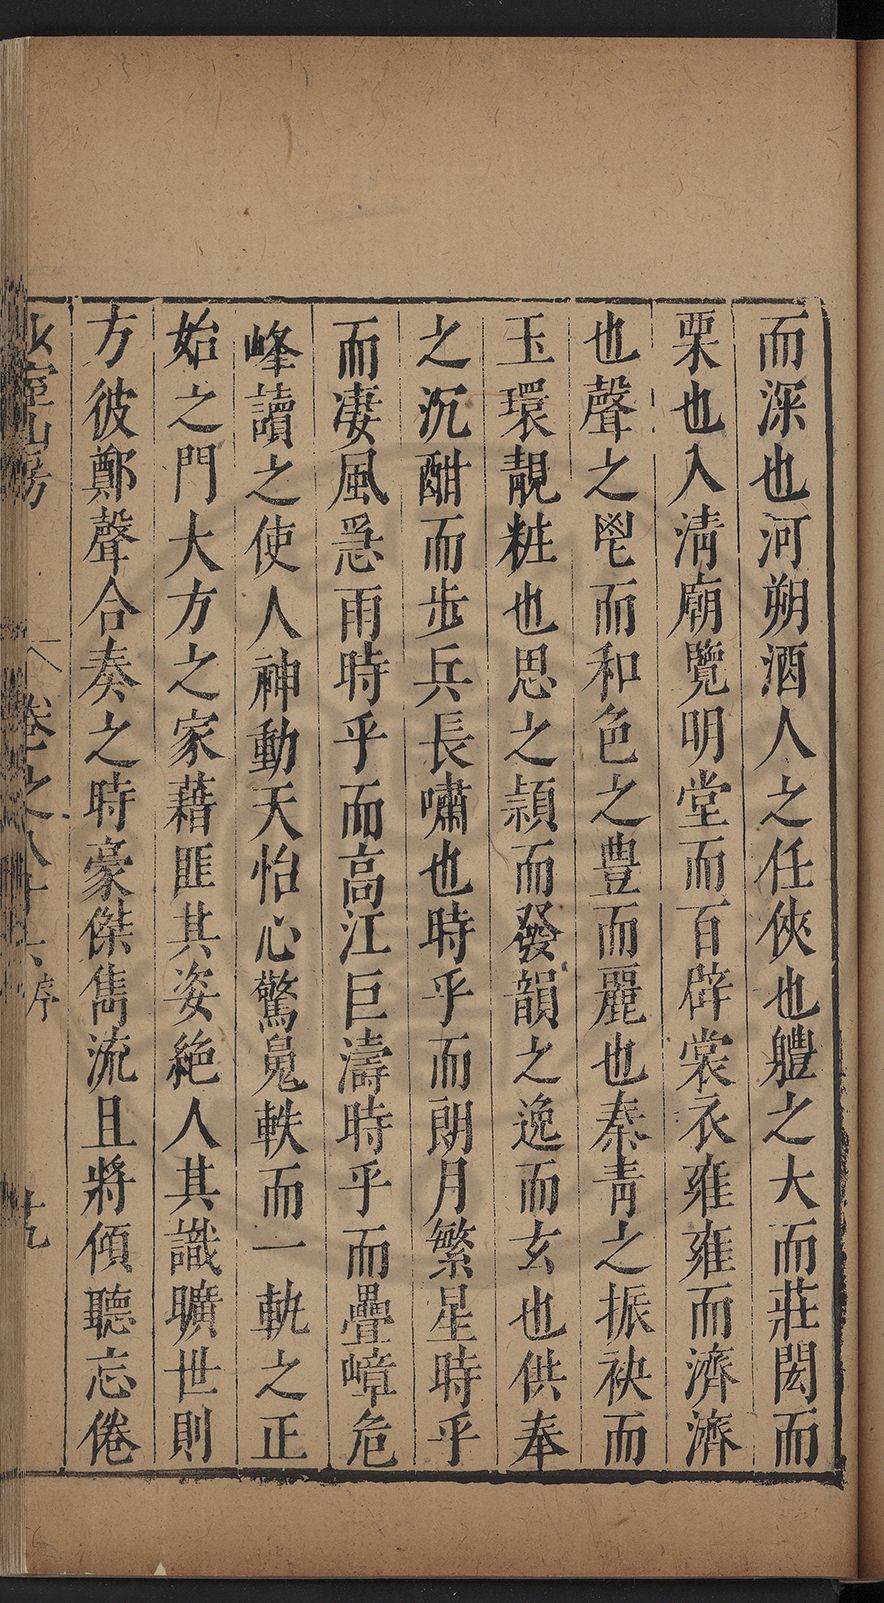 而深也河朔酒人之任俠也軆之大而莊閎而
栗也入淸廟覽明堂而百辟裳衣雍雍而濟濟
也聲之鬯而和色之豊而麗也秦青之振袂而
玉環靚粧也思之頴而發韻之逸而玄也供奉
之沉酣而步兵長嘯也時乎而朗月繁星時乎
而凄風急雨時乎而高江巨濤時乎而疊嶂危
峰讀之使人神動天怡心驚鬼軼而一軌之正
始之門大方之家藉匪其姿絶人其識曠世則
方彼鄭聲合奏之時豪傑雋流且將傾聽忘倦
山房
卷之八十六序
十九